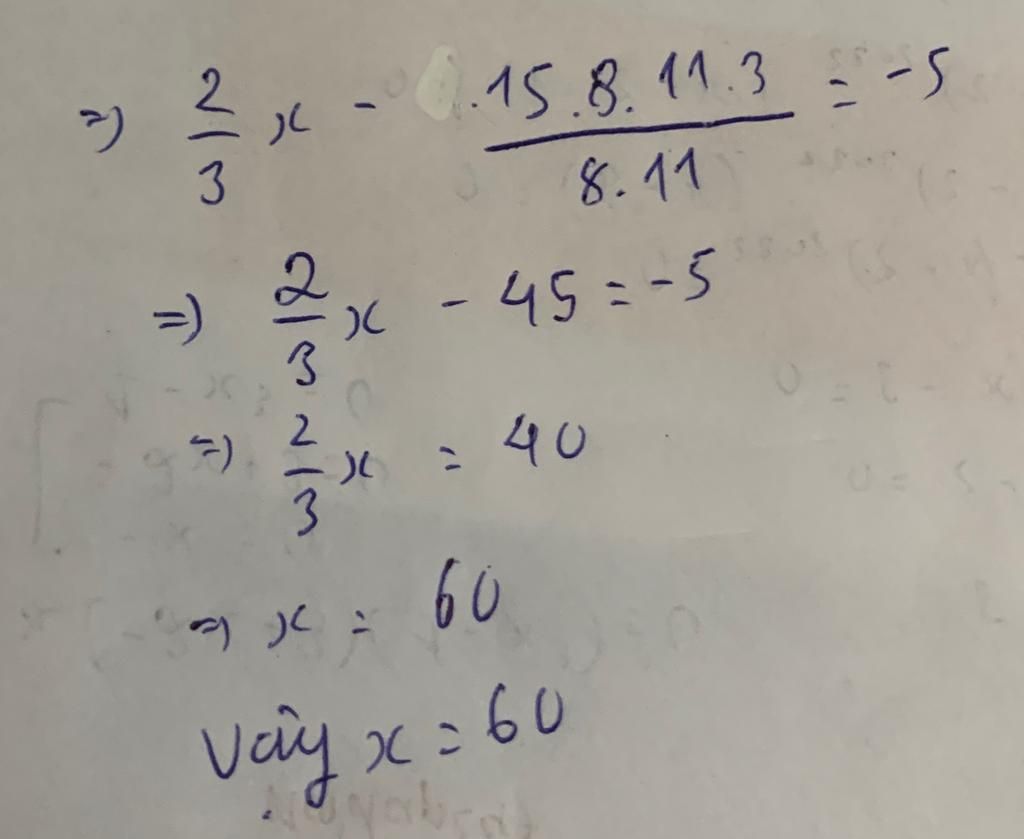 =) 2/3 x - .15.8.11.3 / 8.11 = -5
=) 2/3 x - 45 = -5
=) 2/3 x = 40
=) x = 60
Vậy x = 60